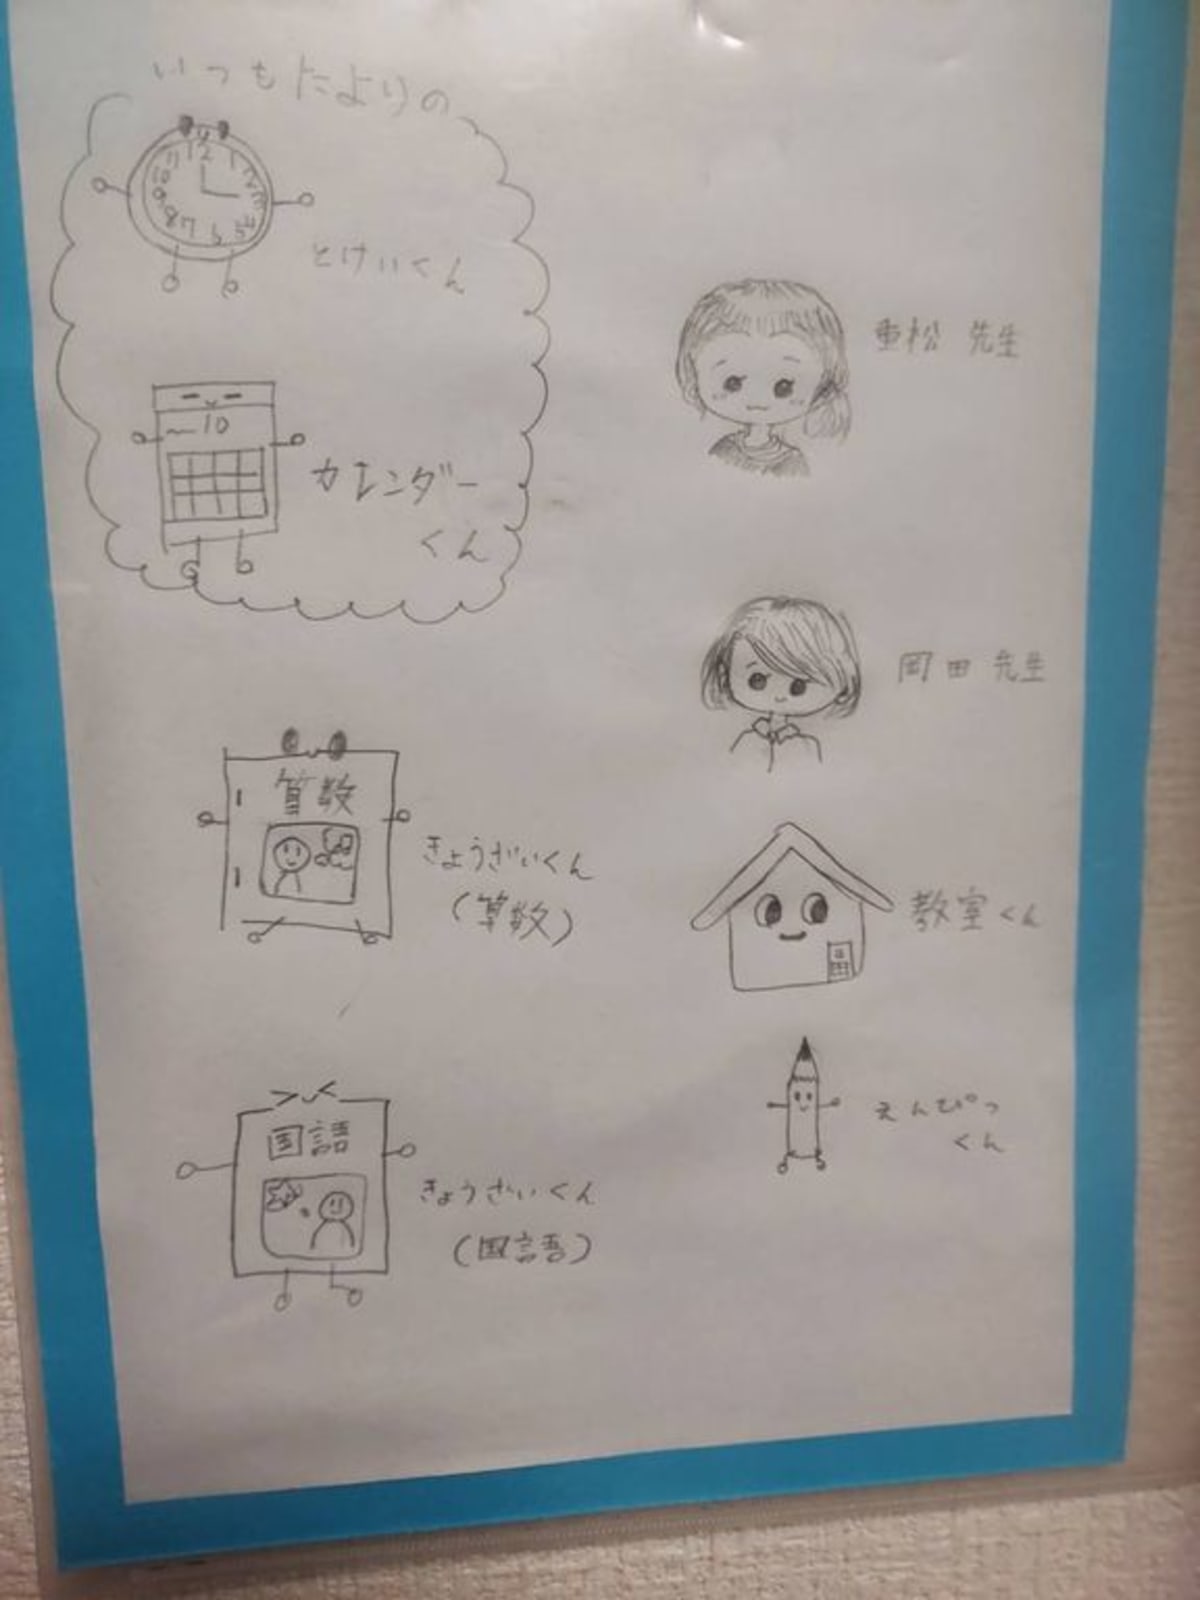 いつもたよりの
12
1
2
3
4
5
6
7
8
9
10
11
とけいくん
~10
カレンダー
くん
算数
きょうざいくん
(算数)
国語
きょうざいくん
(国語)
重松 先生
岡田 先生
教室くん
えんぴつ
くん